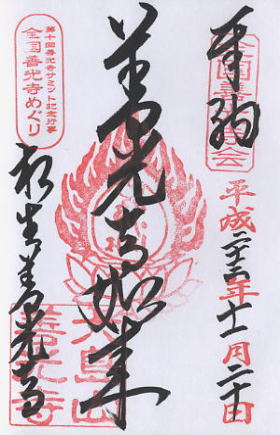 奉納
全国善光寺会
平成
年十一月二十日
善光寺如来
第十回善光寺サミット記念行事
全国善光寺めぐり
生善光寺
善光寺